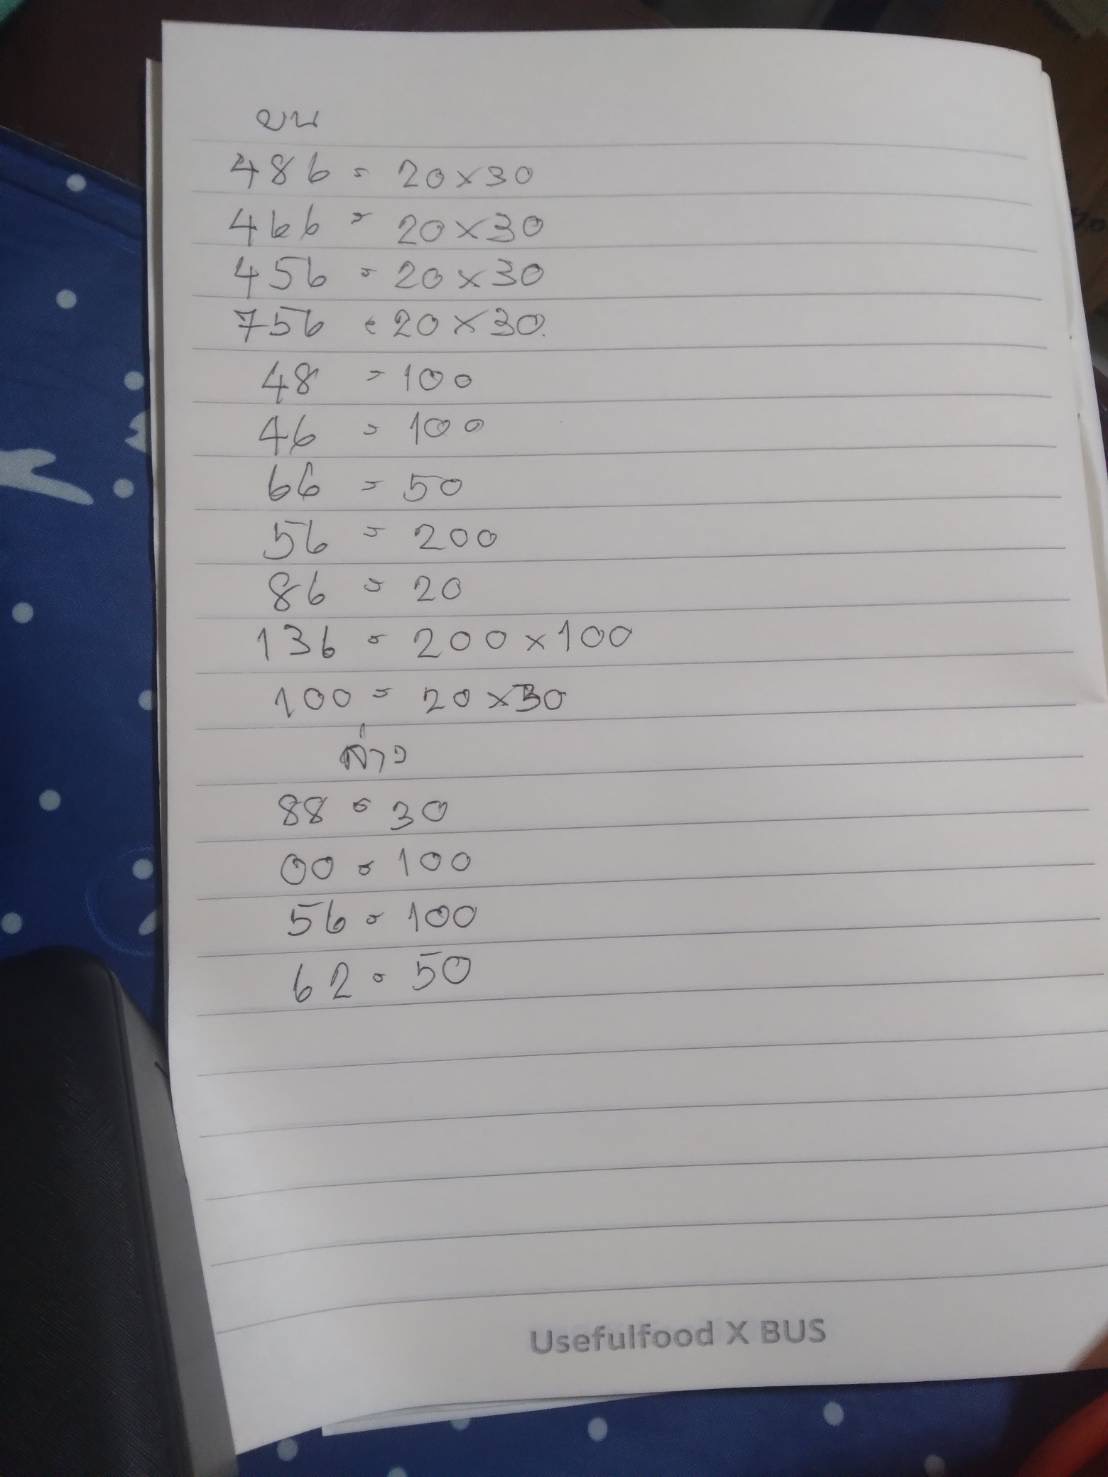 บน
486 = 20×30
466 = 20×30
456 = 20×30
756 = 20×30
48 = 100
46 = 100
66 = 50
56 = 200
86 = 20
136 = 200×100
100 = 20×30
ล่าง
88 = 30
00 = 100
56 = 100
62 = 50
Usefulfood X BUS